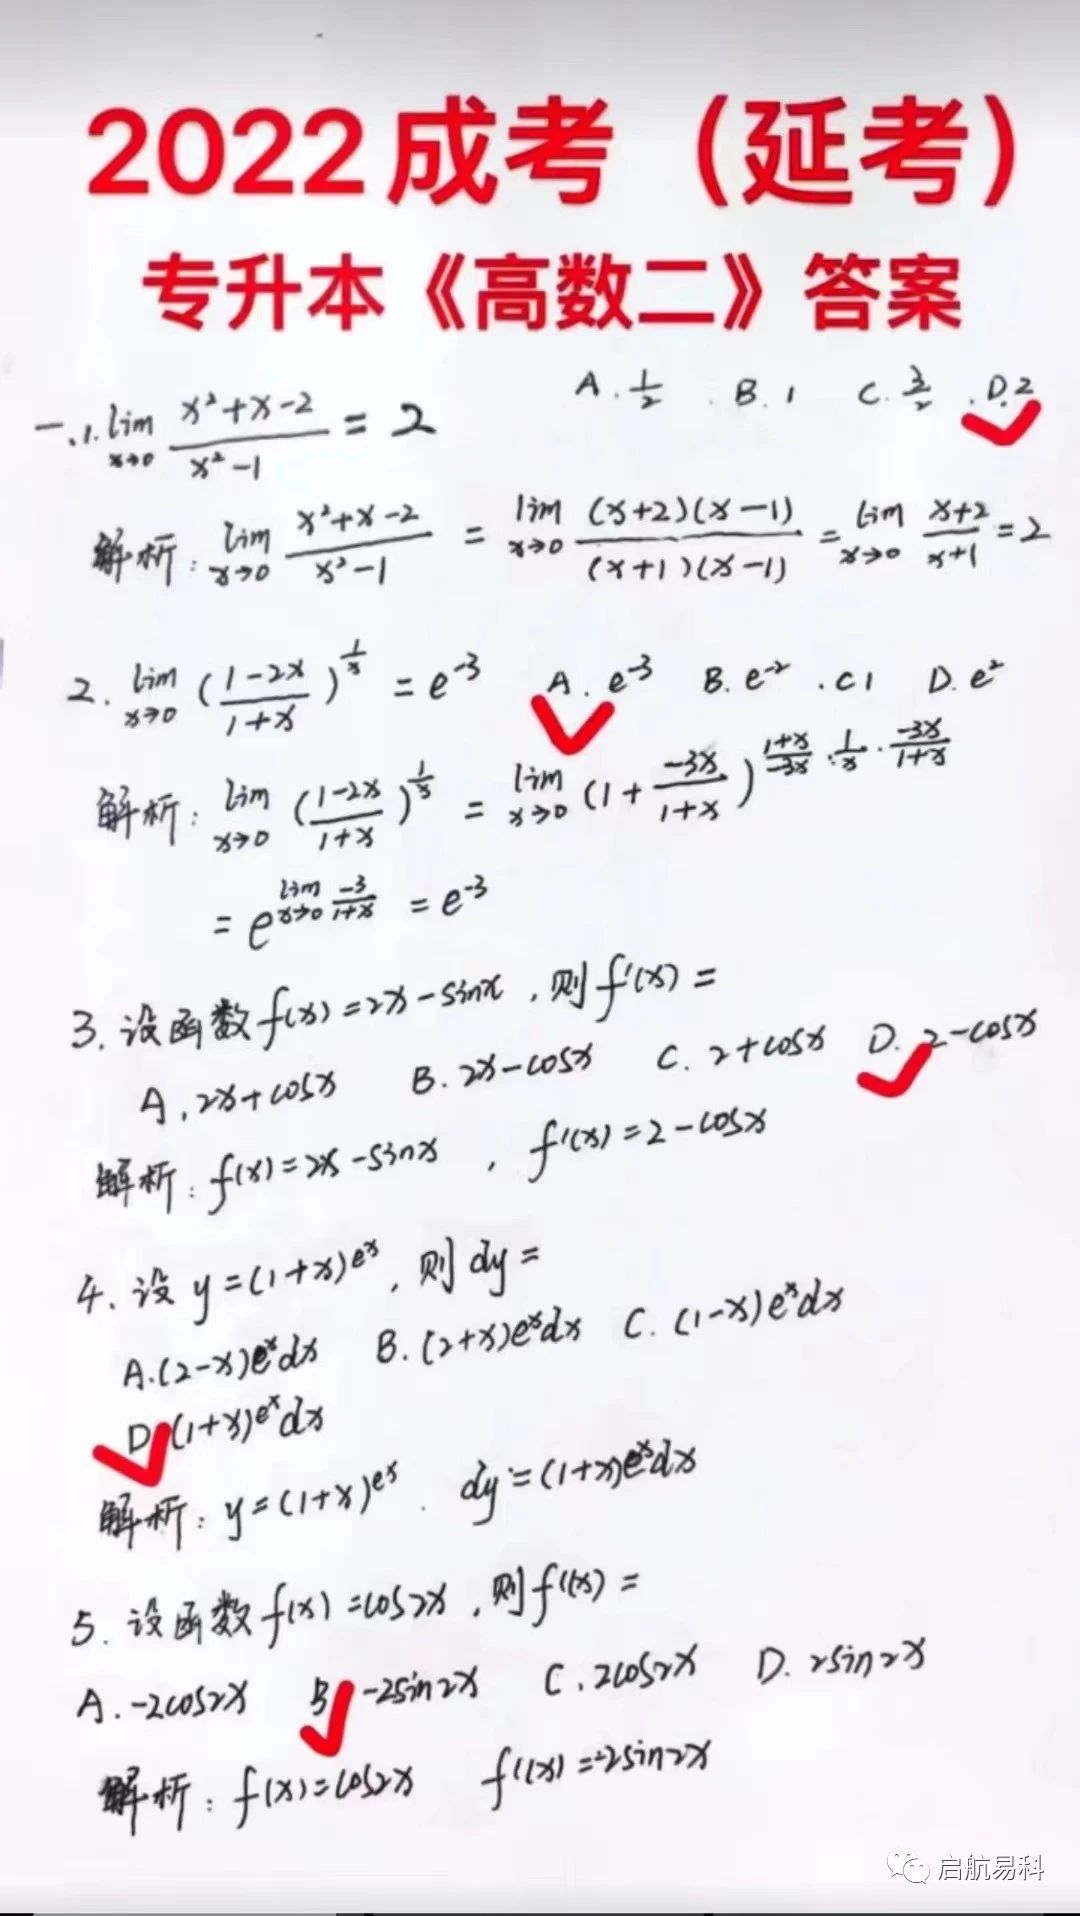 2022成考（延考）
专升本《高数二》答案
一、1. lim x→0 (x²+x-2)/(x²-1) = 2 A. 1/2 . B. 1 C. 3/2 . D. 2
解析: lim x→0 (x²+x-2)/(x²-1) = lim x→0 ((x+2)(x-1))/((x+1)(x-1)) = lim x→0 (x+2)/(x+1) = 2
2. lim x→0 ((1-2x)/(1+x))^(1/x) = e⁻³ A. e⁻³ B. e⁻² . C 1 D. e²
解析: lim x→0 ((1-2x)/(1+x))^(1/x) = lim x→0 (1 + (-3x)/(1+x))^((1+x)/(-3x) · 1/x · (-3x)/(1+x))
= e^(lim x→0 (-3)/(1+x)) = e⁻³
3. 设函数 f(x)=2x-sinx , 则 f'(x) =
A. 2x+cosx B. 2x-cosx C. 2+cosx D. 2-cosx
解析: f(x)=2x-sinx , f'(x)=2-cosx
4. 设 y=(1+x)^(eˣ) , 则 dy =
A. (2-x)eˣdx B. (2+x)eˣdx C. (1-x)eˣdx
D (1+x)^(eˣ)dx
解析: y=(1+x)^(eˣ) . dy=(1+x)eˣdx
5. 设函数 f(x)=cos2x , 则 f'(x) =
A. -2cos2x B -2sin2x C. 2cos2x D. 2sin2x
解析: f(x)=cos2x f'(x)=-2sin2x
启航易科